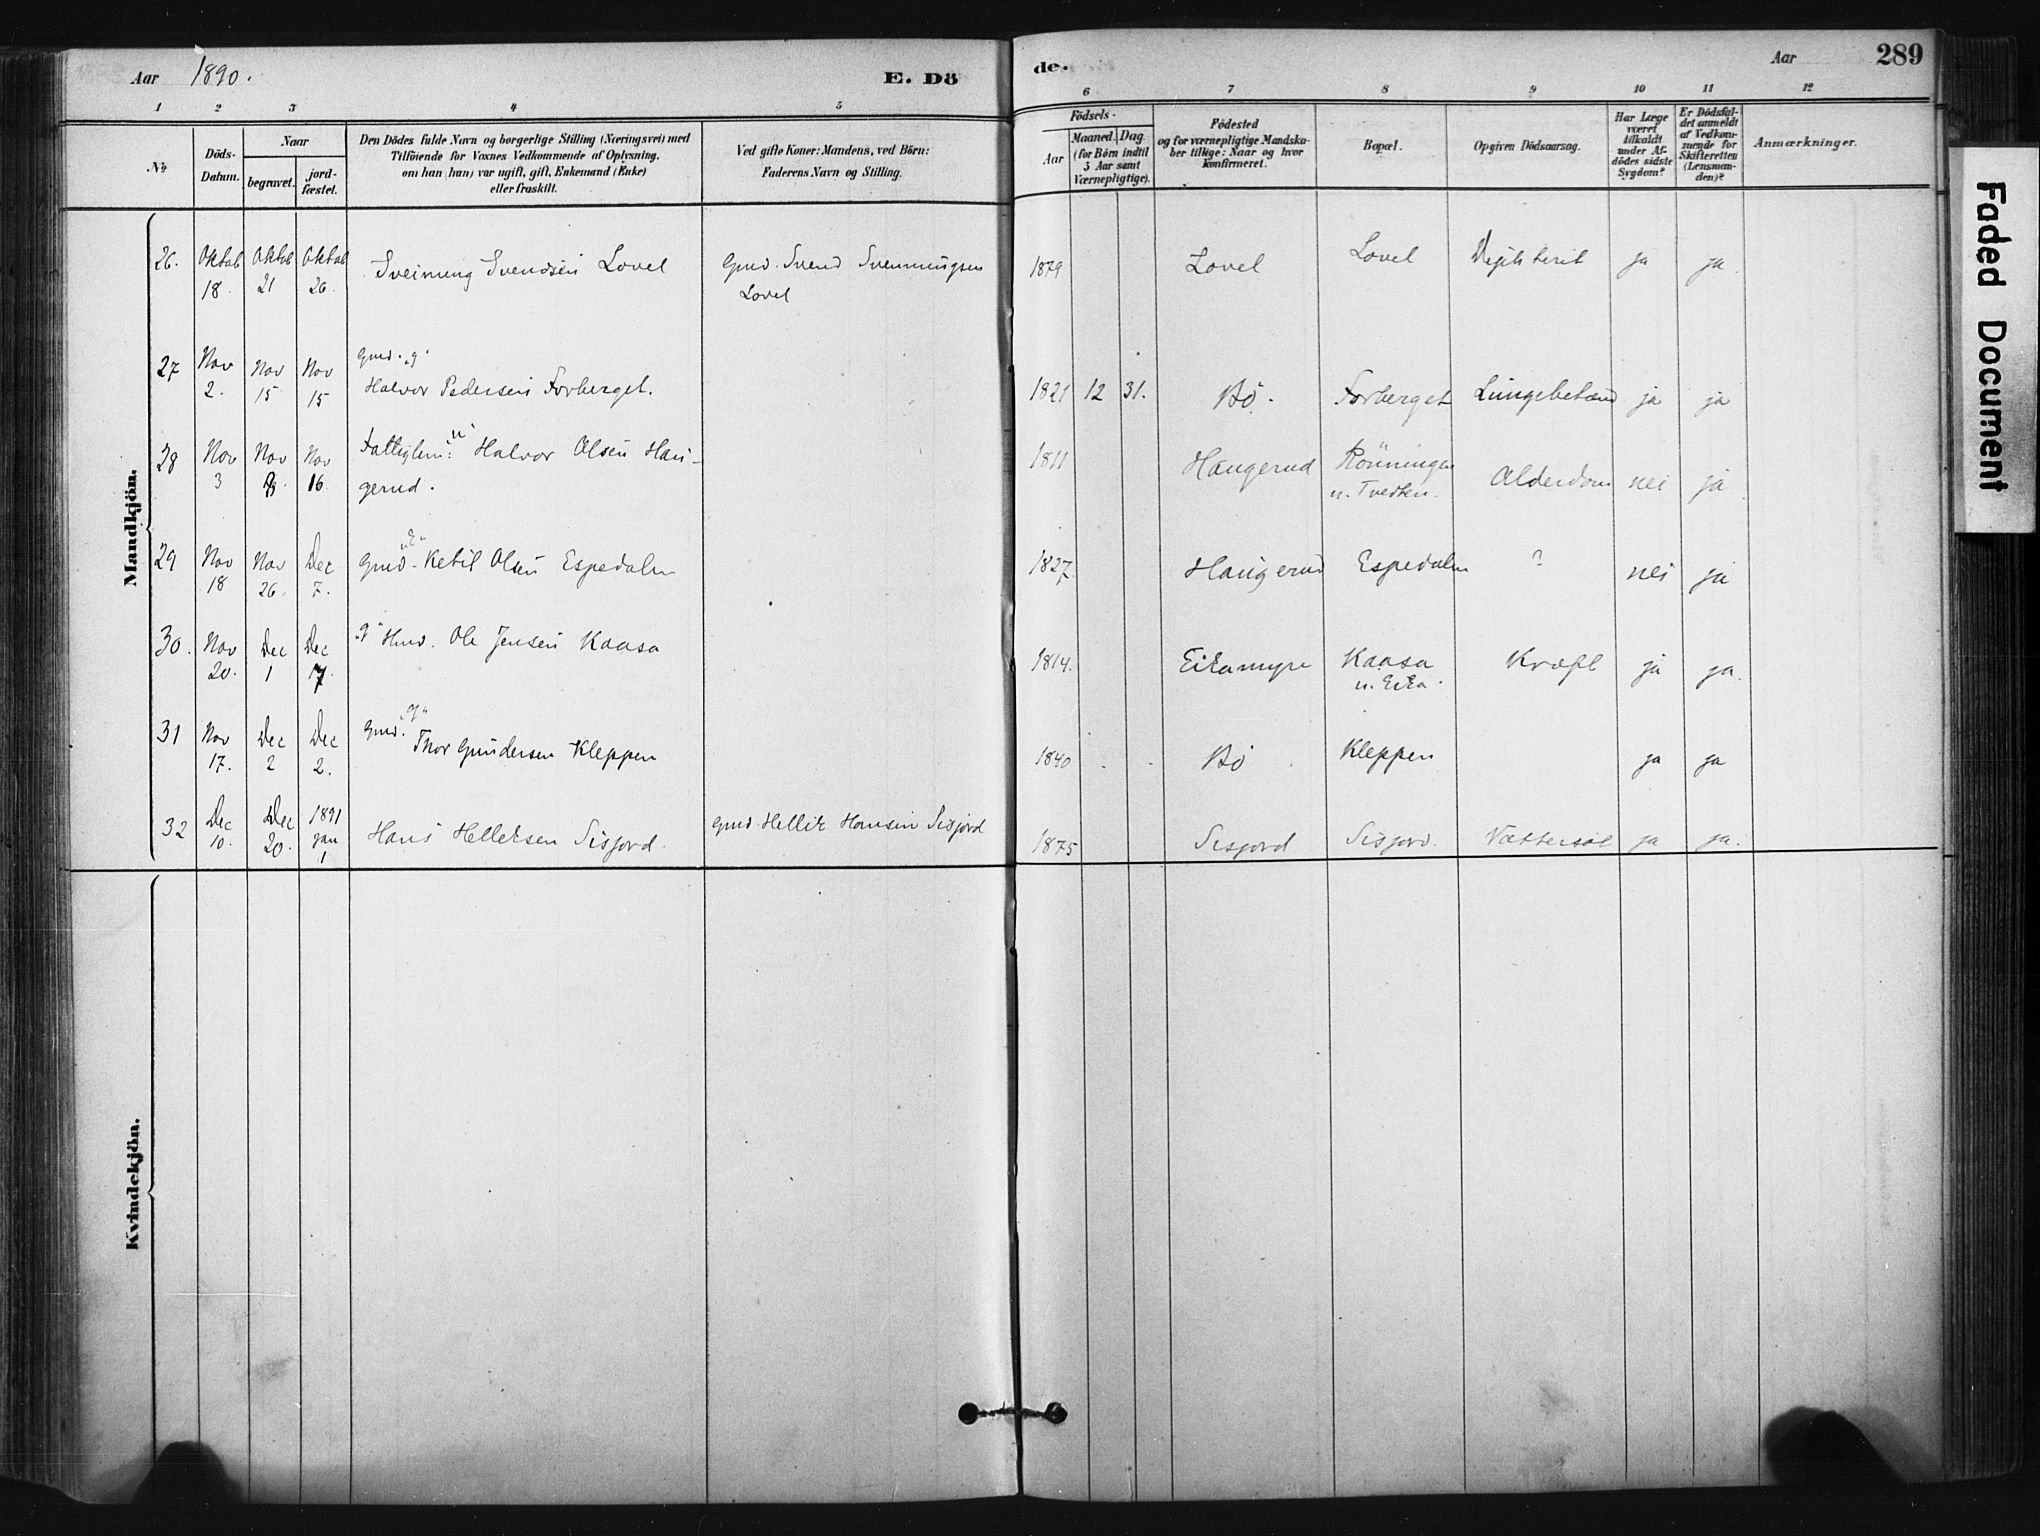 Aar 1890. E. Dö
1 2 3 4 5
No
Döds-Datum.
Naar
begravet.
jord-fæstet.
Den Dödes fulde Navn og borgerlige Stilling (Næringsvei) med
Tilföiende for Voxnes Vedkommende af Oplysning.
om han (hun) var ugift, gift, Enkemand (Enke)
eller fraskilt.
Ved gifte Koner: Mandens, ved Börn:
Faderens Navn og Stilling.
Mandkjön.
26. Oktob 18. Oktob 21 Oktob 26. Sveinung Svendsen Lovel Gmd. Svend Svennungsen
Lovel
27 Nov 2. Nov 15 Nov 15 Gmd. "g"
Halvor Pedersen Forberget.
28 Nov 3 Nov Nov 16. Fattiglem: "u" Halvor Olsen Hau-
gerud.
29 Nov 18 Nov 26. Dec 7. Gmd. "e" Ketil Olsen Espedalen
30. Nov 20. Dec 1 Dec 7. "g" Hmd. Ole Jensen Kaasa
31 Nov 17. Dec 2 Dec 2. Gmd. "g" Thor Gundersen Kleppen
32 Dec 10. Dec 20. 1891 Jan 1 Hans Helleksen Sisjord. Gmd. Hellik Hansen Sisjord
Kvindekjön.
de. Aar 289
6 7 8 9 10 11 12
Födsels-
Aar
Maaned. Dag.
(for Börn indtil
5 Aar samt
Værnepligtige).
Födested
og for værnepligtige Mandska-
ber tillige: Naar og hvor
konfirmeret.
Bopæl.
Opgiven Dödsaarsag.
Har Læge
været
tilkaldt
under Af-
dödes sidste
Sygdom?
Er Dödsfal-
det anmeldt
af Vedkom-
mende for
Skifteretten
(Lensman-
den)?
Anmærkninger.
1879 Lovel Lovel Difterit ja ja.
1821 12 31. Bö. Forberget Lungebetænd ja ja
1811 Haugerud Rönningen
u. Tvedten. Alderdom nei ja
1827 Haugerud Espedalen ? nei ja
1814. Eikamyre Kaasa
u. Eika. Kræft ja ja.
1840 Bö Kleppen ja ja
1875 Sisjord Sisjord. Vattersot ja ja.
Faded Document